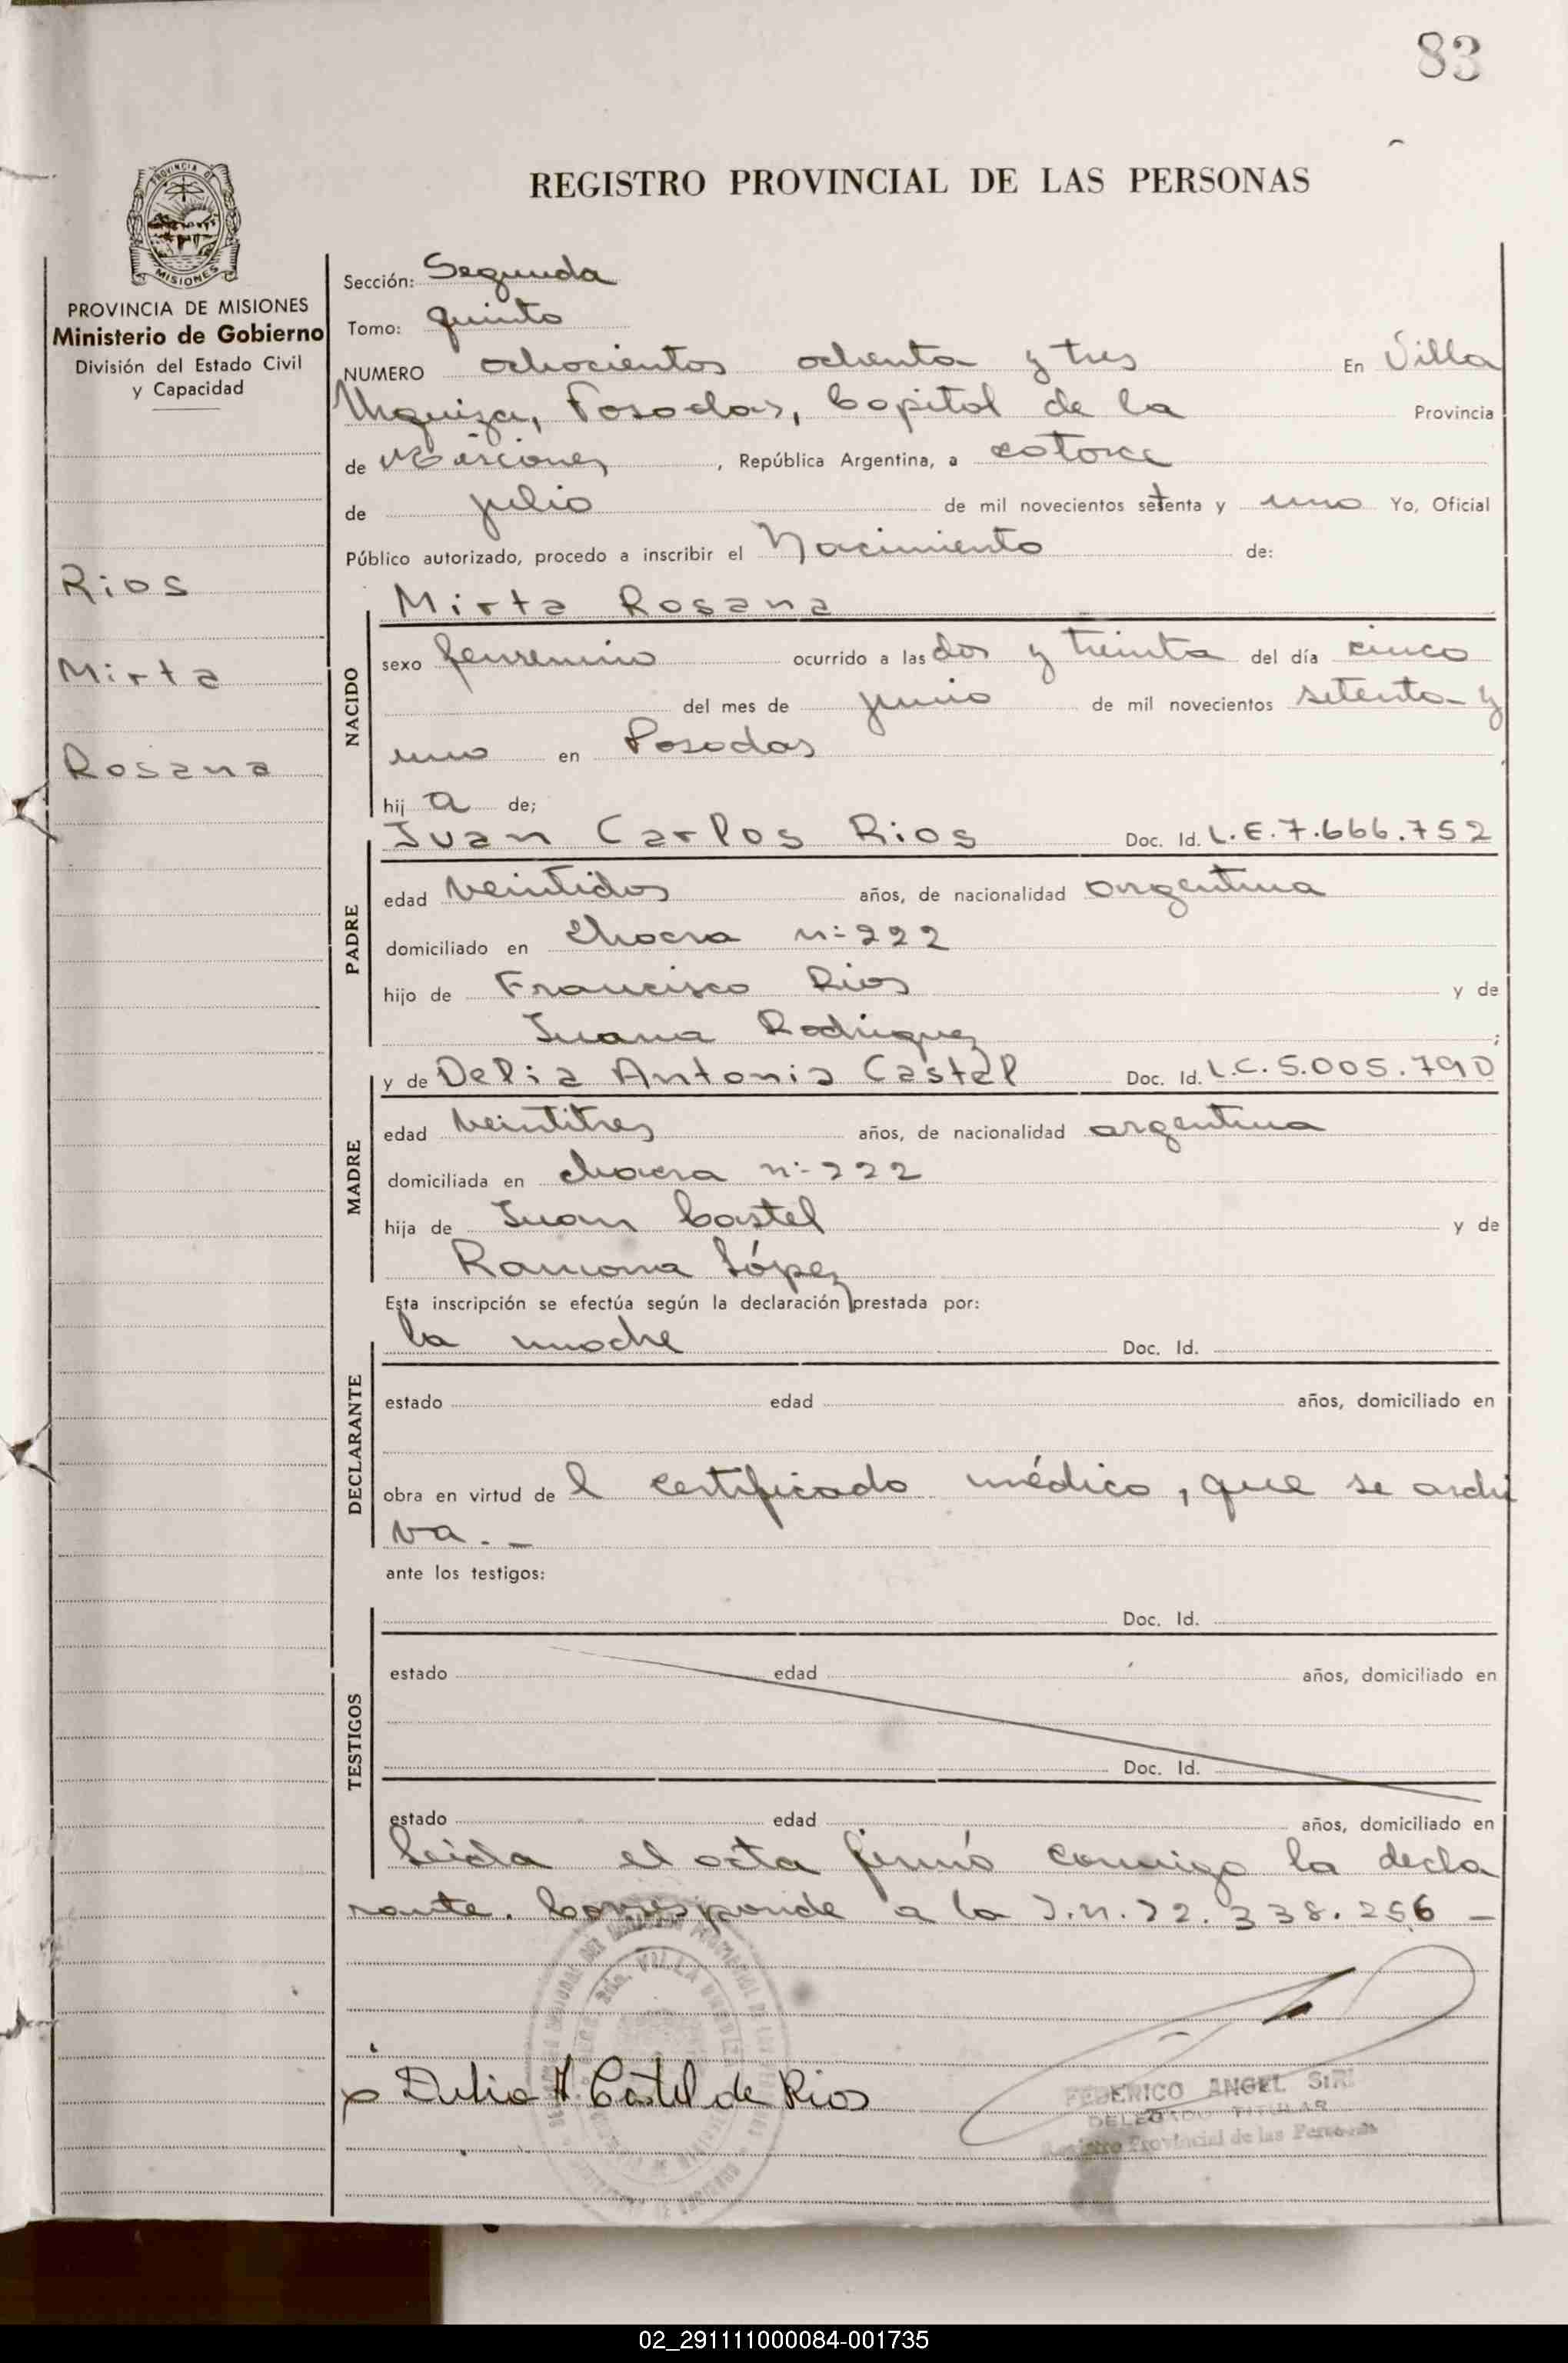 83
PROVINCIA DE
MISIONES
REGISTRO PROVINCIAL DE LAS PERSONAS
PROVINCIA DE MISIONES
Ministerio de Gobierno
División del Estado Civil
y Capacidad
Rios
Mirta
Rosana
Sección: Segunda
Tomo: quinto
NUMERO ochocientos ochenta y tres En Villa
Urquiza, Posadas, Capital de la Provincia
de Misiones, República Argentina, a catorce
de julio de mil novecientos setenta y uno Yo, Oficial
Público autorizado, procedo a inscribir el Nacimiento de:
Mirta Rosana
NACIDO
sexo femenino ocurrido a las dos y treinta del día cinco
del mes de junio de mil novecientos setenta y
uno en Posadas
hij a de;
Juan Carlos Rios Doc. Id. L.E.7.666.752
PADRE
edad veintidos años, de nacionalidad argentina
domiciliado en Chacra n:222
hijo de Francisco Rios y de
Juana Rodriguez ;
y de Delia Antonia Castel Doc. Id. L.C.5.005.790
MADRE
edad veintitres años, de nacionalidad argentina
domiciliada en chacra n:-222
hija de Juan Castel y de
Ramona López
Esta inscripción se efectúa según la declaración prestada por:
la madre Doc. Id.
DECLARANTE
estado edad años, domiciliado en
obra en virtud de l certificado médico, que se archi
va. -
ante los testigos:
Doc. Id.
TESTIGOS
estado edad años, domiciliado en
Doc. Id.
estado edad años, domiciliado en
Leída el acta firmó conmigo la decla
rante. Corresponde a la I.N.22.338.256 -
Delia A Castel de Rios
FEDERICO ANGEL SIRI
DELEGADO TITULAR
Registro Provincial de las Personas
02_291111000084-001735